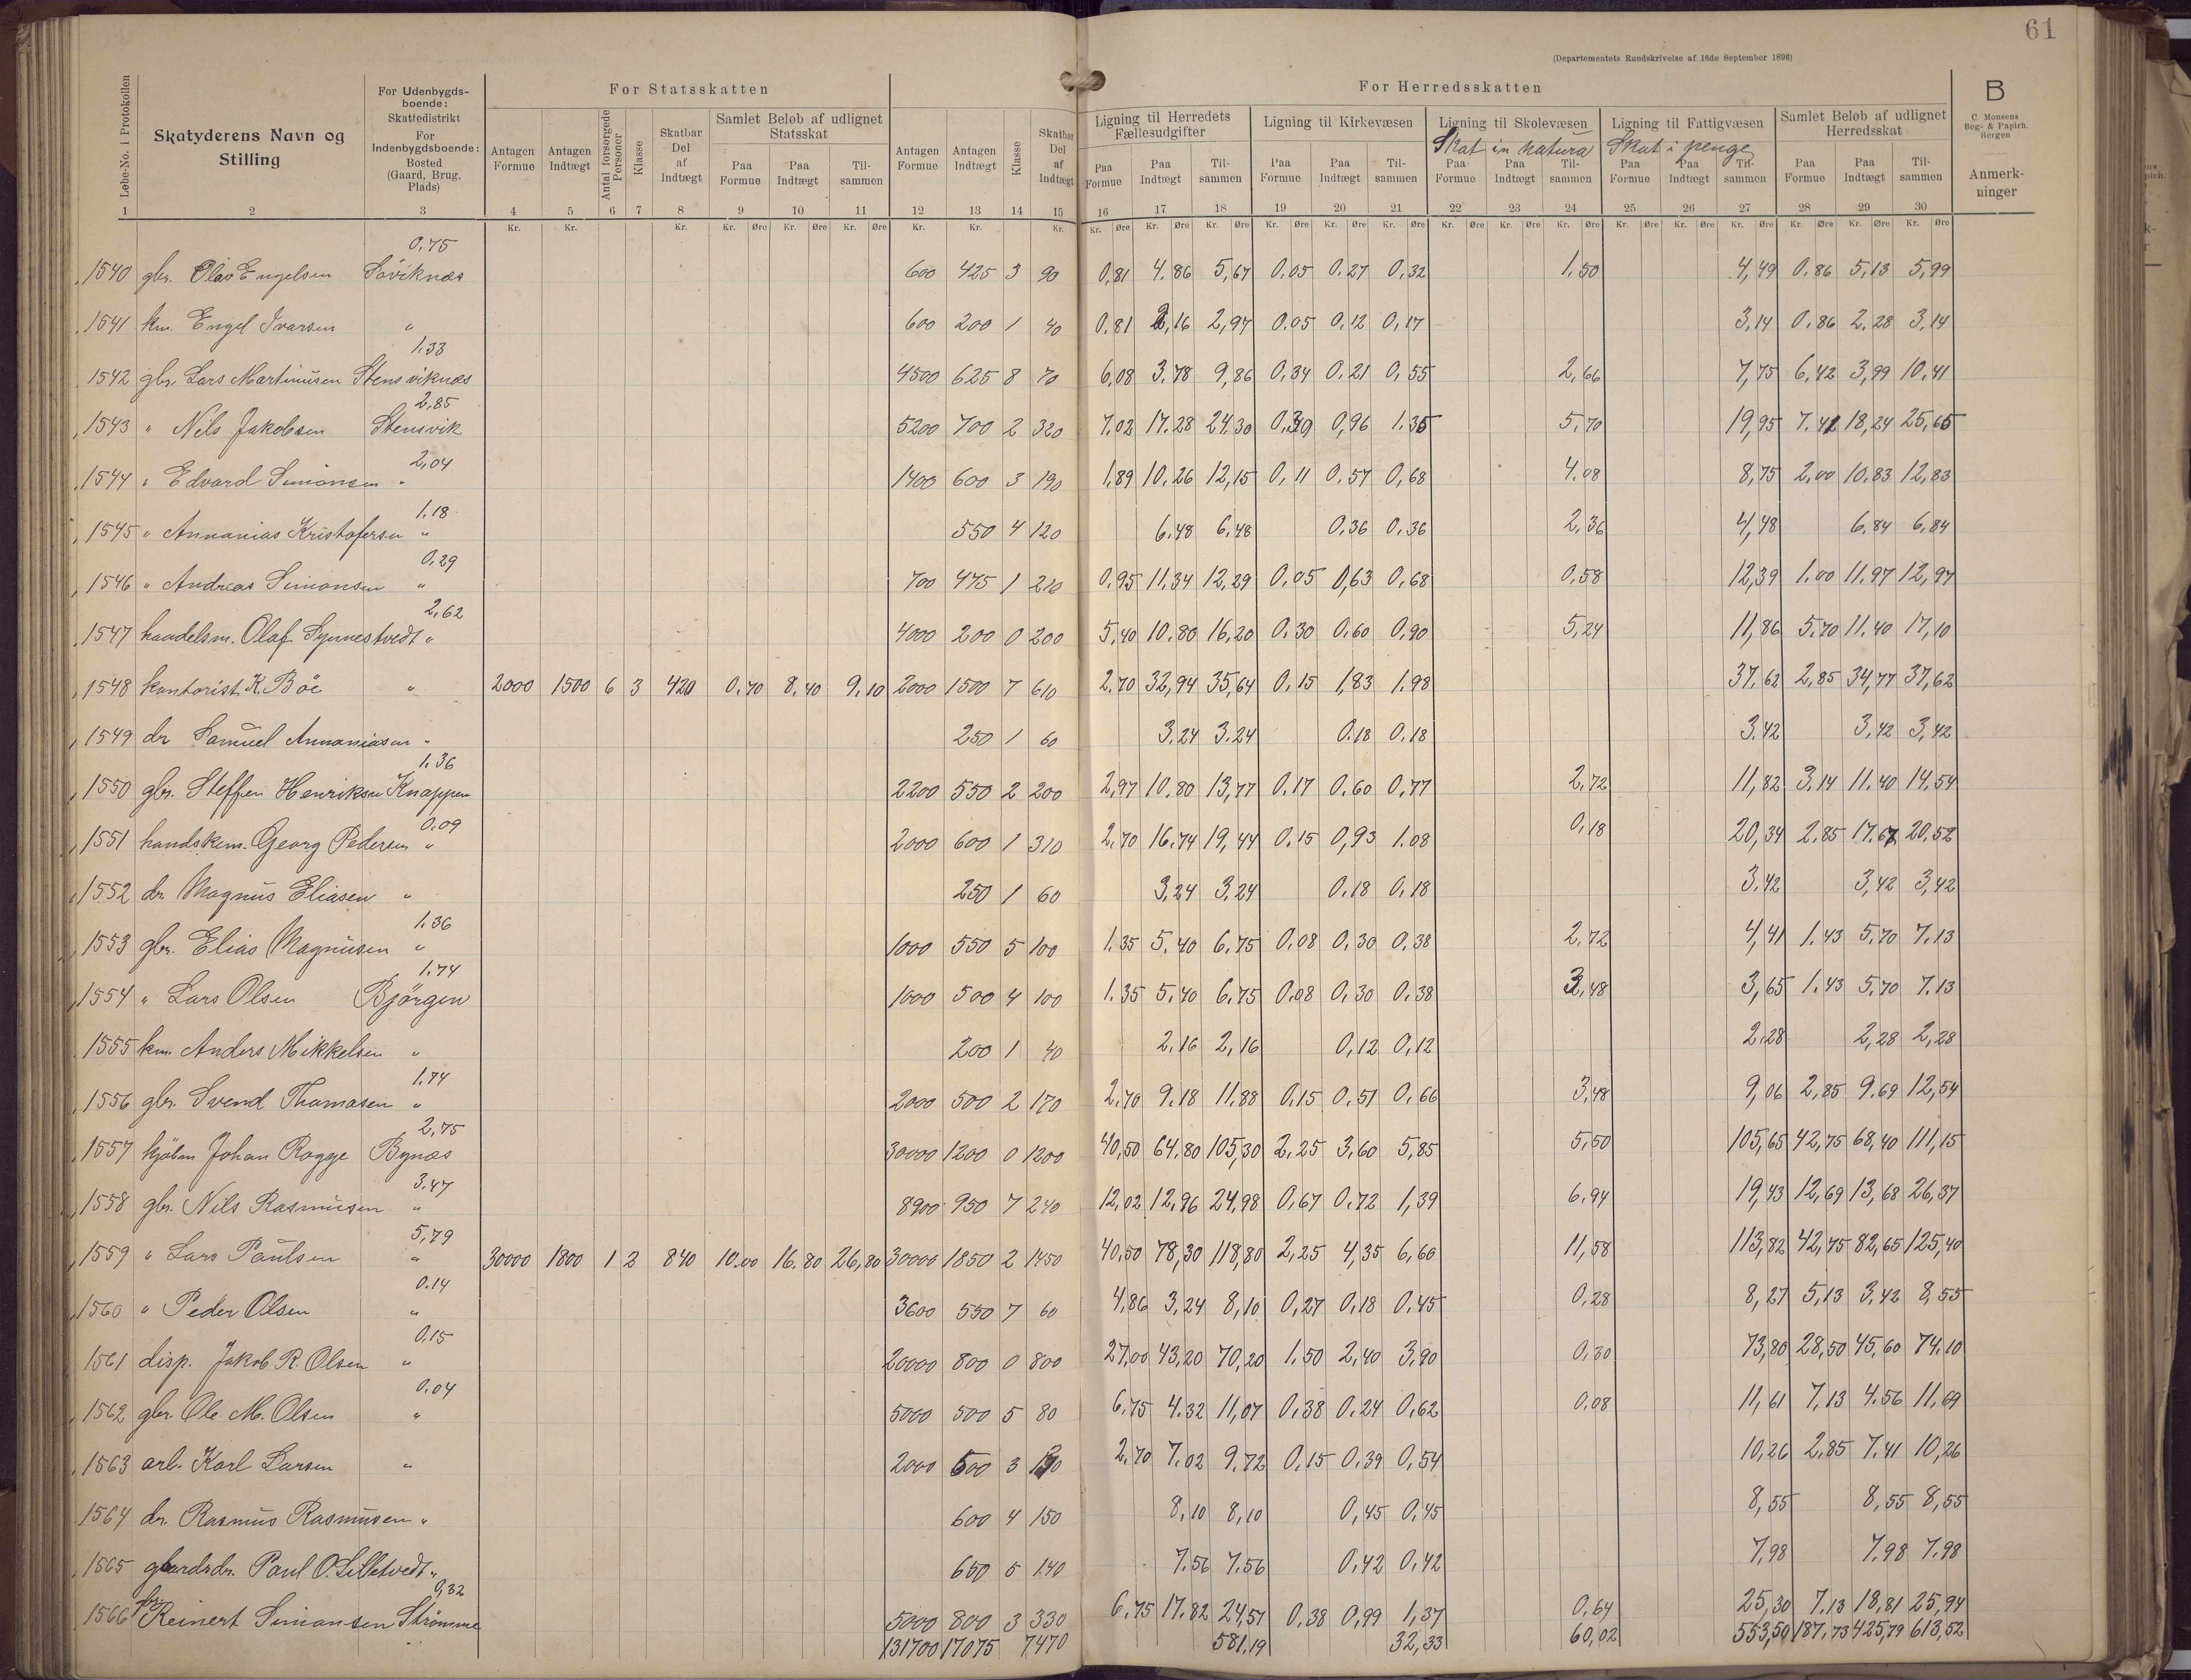 61
(Departementets Rundskrivelse af 16de September 1896)
For Statsskatten
For Herredsskatten
B
C. Monsens Bog- & Papirh. Bergen
Anmerkninger
Løbe-No. i Protokollen
Skatyderens Navn og Stilling
For Udenbygdsboende: Skattedistrikt
For Indenbygdsboende: Bosted (Gaard, Brug, Plads)
Antagen Formue Antagen Indtægt Antal forsørgede Personer Klasse Skatbar Del af Indtægt
Samlet Beløb af udlignet Statsskat
Paa Formue Paa Indtægt Tilsammen
Antagen Formue Antagen Indtægt Klasse Skatbar Del af Indtægt
Ligning til Herredets Fællesudgifter
Paa Formue Paa Indtægt Tilsammen
Ligning til Kirkevæsen
Paa Formue Paa Indtægt Tilsammen
Ligning til Skolevæsen
Skat in natura
Paa Formue Paa Indtægt Tilsammen
Ligning til Fattigvæsen
Skat i penge
Paa Formue Paa Indtægt Tilsammen
Samlet Beløb af udlignet Herredsskat
Paa Formue Paa Indtægt Tilsammen
1 2 3 4 5 6 7 8 9 10 11 12 13 14 15 16 17 18 19 20 21 22 23 24 25 26 27 28 29 30
Kr. Kr. Kr. Kr. Øre Kr. Øre Kr. Øre Kr. Kr. Kr. Kr. Øre Kr. Øre Kr. Øre Kr. Øre Kr. Øre Kr. Øre Kr. Øre Kr. Øre Kr. Øre Kr. Øre Kr. Øre Kr. Øre Kr. Øre Kr. Øre Kr. Øre
0,75
1540 gbr. Olav Engelsen Söviknæs 600 425 3 90 0,81 4,86 5,67 0,05 0,27 0,32 1,50 4,49 0,86 5,13 5,99
1541 km. Engel Ivarsen " 600 200 1 40 0,81 2,16 2,97 0,05 0,12 0,17 3,14 0,86 2,28 3,14
1,33
1542 gbr. Lars Martinusen Stensviknæs 4500 625 8 70 6,08 3,78 9,86 0,34 0,21 0,55 2,66 7,75 6,42 3,99 10,41
2,85
1543 " Nils Jakobsen Stensvik 5200 700 2 320 7,02 17,28 24,30 0,39 0,96 1,35 5,70 19,95 7,41 18,24 25,65
2,04
1544 " Edvard Simonsen " 1400 600 3 190 1,89 10,26 12,15 0,11 0,57 0,68 4,08 8,75 2,00 10,83 12,83
1,18
1545 " Annanias Kristofersen " 550 4 120 6,48 6,48 0,36 0,36 2,36 4,48 6,84 6,84
0,29
1546 " Andreas Simonsen " 700 475 1 210 0,95 11,34 12,29 0,05 0,63 0,68 0,58 12,39 1,00 11,97 12,97
2,62
1547 handelsm. Olaf Synnestvedt " 4000 200 0 200 5,40 10,80 16,20 0,30 0,60 0,90 5,24 11,86 5,70 11,40 17,10
1548 kontorist K. Böe " 2000 1500 6 3 420 0,70 8,40 9,10 2000 1500 7 610 2,70 32,94 35,64 0,15 1,83 1,98 37,62 2,85 34,77 37,62
1549 dr Samuel Annaniasen " 250 1 60 3,24 3,24 0,18 0,18 3,42 3,42 3,42
1,36
1550 gbr. Steffen Henriksen Knappen 2200 550 2 200 2,97 10,80 13,77 0,17 0,60 0,77 2,72 11,82 3,14 11,40 14,54
0,09
1551 handskem. Georg Pedersen " 2000 600 1 310 2,70 16,74 19,44 0,15 0,93 1,08 0,18 20,34 2,85 17,67 20,52
1552 dr. Magnus Eliasen " 250 1 60 3,24 3,24 0,18 0,18 3,42 3,42 3,42
1,36
1553 gbr. Elias Magnusen " 1000 550 5 100 1,35 5,40 6,75 0,08 0,30 0,38 2,72 4,41 1,43 5,70 7,13
1,74
1554 " Lars Olsen Bjørgen 1000 500 4 100 1,35 5,40 6,75 0,08 0,30 0,38 3,48 3,65 1,43 5,70 7,13
1555 km. Anders Mikkelsen " 200 1 40 2,16 2,16 0,12 0,12 2,28 2,28 2,28
1,74
1556 gbr. Svend Thomasen " 2000 500 2 170 2,70 9,18 11,88 0,15 0,51 0,66 3,48 9,06 2,85 9,69 12,54
2,75
1557 kjöbm Johan Rogge Bynæs 30000 1200 0 1200 40,50 64,80 105,30 2,25 3,60 5,85 5,50 105,65 42,75 68,40 111,15
3,47
1558 gbr. Nils Rasmusen " 8900 950 7 240 12,02 12,96 24,98 0,67 0,72 1,39 6,94 19,43 12,69 13,68 26,37
5,79
1559 " Lars Paulsen " 30000 1800 1 2 840 10,00 16,80 26,80 30000 1850 2 1450 40,50 78,30 118,80 2,25 4,35 6,60 11,58 113,82 42,75 82,65 125,40
0,14
1560 " Peder Olsen " 3600 550 7 60 4,86 3,24 8,10 0,27 0,18 0,45 0,28 8,27 5,13 3,42 8,55
0,15
1561 disp. Jakob R. Olsen " 20000 800 0 800 27,00 43,20 70,20 1,50 2,40 3,90 0,30 73,80 28,50 45,60 74,10
0,04
1562 gbr. Ole M. Olsen " 5000 500 5 80 6,75 4,32 11,07 0,38 0,24 0,62 0,08 11,61 7,13 4,56 11,69
1563 arb. Karl Larsen " 2000 500 3 130 2,70 7,02 9,72 0,15 0,39 0,54 10,26 2,85 7,41 10,26
1564 dr. Rasmus Rasmusen " 600 4 150 8,10 8,10 0,45 0,45 8,55 8,55 8,55
1565 gaardsdr. Paul O. Lilletvedt " 650 5 140 7,56 7,56 0,42 0,42 7,98 7,98 7,98
0,32
1566 gbr. Reinert Simonsen Strömme 5000 800 3 330 6,75 17,82 24,57 0,38 0,99 1,37 0,64 25,30 7,13 18,81 25,94
131700 17075 7470 581,19 32,33 60,02 553,50 187,73 425,79 613,52